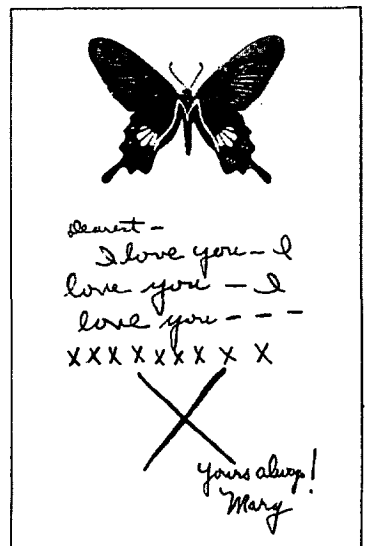 Dearest –
I love you – I
love you – I
love you – – –
x x x x x x x x x
X
Yours always!
Mary